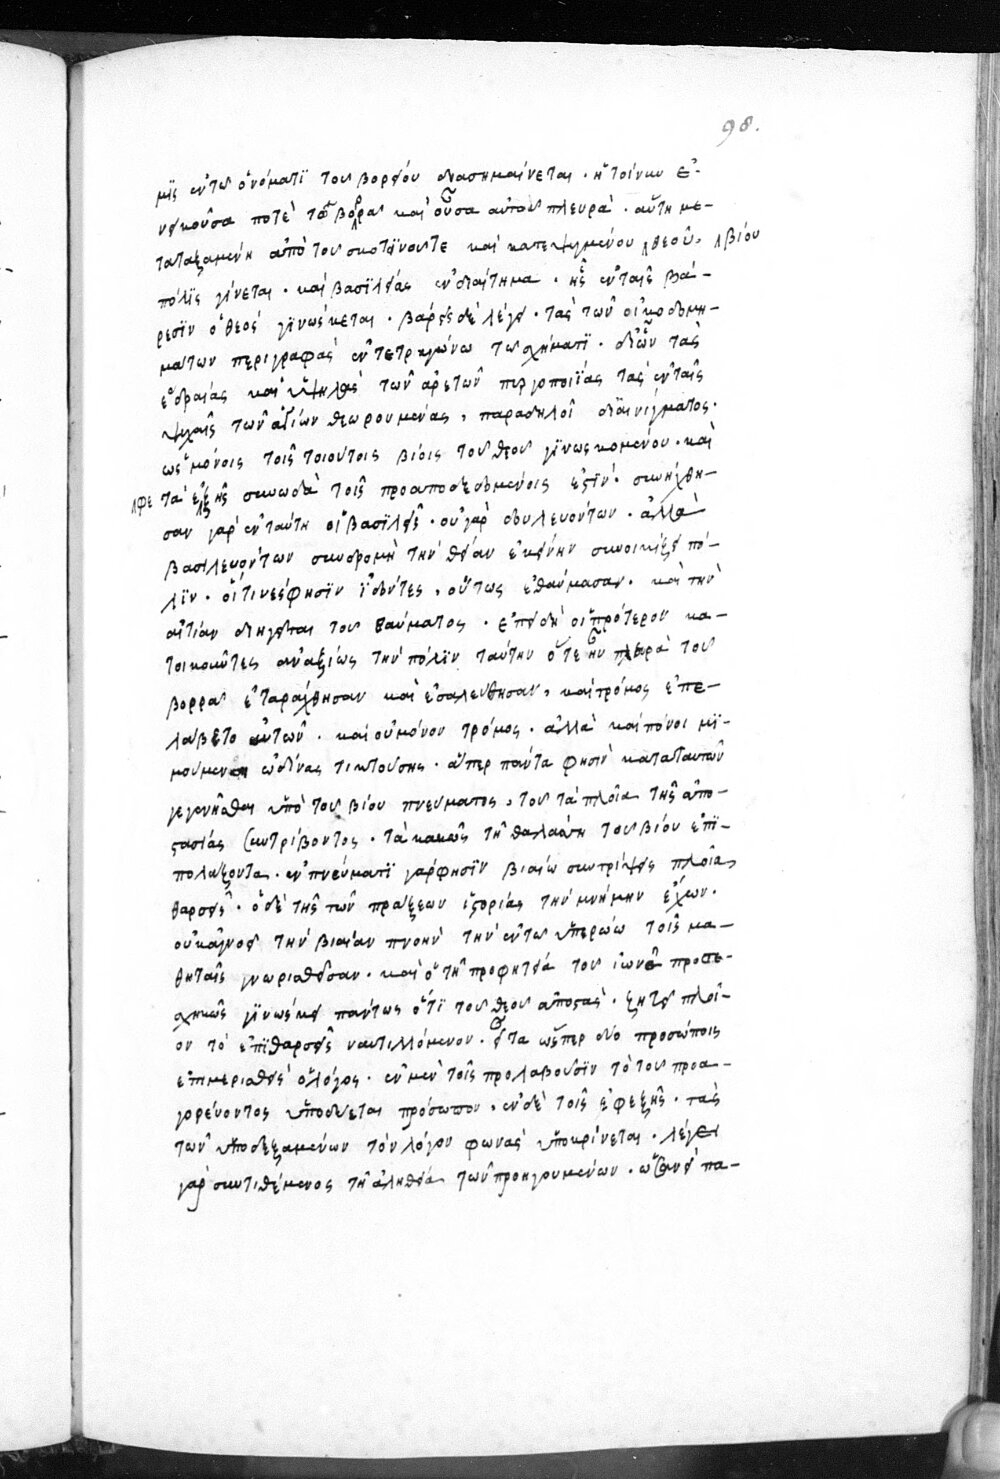 98.
μῒς ἐν τῶ ὀνόματϊ τοῦ βορείου διασημαίνεται · ἡ τοίνυν ἐ-
νοικοῦσα ποτὲ τῶ βορρᾶ καὶ οὖσα αὐτοῦ πλευρὰ · αὕτη με-
ταταξαμένη ἀπὸ τοῦ σκοτεινοῦ τε καὶ κατεψυγμένου θεοῦ, βίου
πόλϊς γίνεται · καὶ βασϊλείας ἐνδιαίτημα · ἧς ἐν ταῖς βά-
ρεσϊν ὁ θεὸς γϊνώσκεται · βάρεις δὲ λέγει · τὰς τῶν οἰκοδομη-
μάτων περιγραφὰς ἐν τετραγώνω τῶ σχήματϊ · δι' ὧν τὰς
ἑδραίας καὶ ὑψηλὰς τῶν ἀρετῶν πυργοποιΐας τὰς ἐν ταῖς
ψυχαῖς τῶν ἁγίων θεωρουμένας, παραδηλοῖ δι' αἰνίγματος ·
ὡς μόνοις τοῖς τοιούτοις βίοις τοῦ θεοῦ γϊνωσκομένου · καὶ
τὰ ἐφεξῆς συνωδὰ τοῖς προαποδεδομένοις ἐστϊν · συνήχθη-
σαν γὰρ ἐν ταύτη οἱ βασϊλεῖς · οὐ γὰρ δουλευόντων · ἀλλὰ
βασιλευόντων συνδρομὴ τὴν θείαν ἐκείνην συνοικίζει πό-
λϊν · οἵτινές φησϊν ἰδόντες, οὕτως ἐθαύμασαν · καὶ τὴν
αἰτίαν διηγεῖται τοῦ θαύματος · ἐπειδὴ οἱ πρότερον κα-
τοικοῦντες ἀναξίως τὴν πόλϊν ταύτην ὅτε ἦν πλευρὰ τοῦ
βορρᾶ ἐταράχθησαν καὶ ἐσαλεύθησαν, καὶ τρόμος ἐπε-
λάβετο αὐτῶν · καὶ οὐ μόνον τρόμος · ἀλλὰ καὶ πόνοι μϊ-
μούμενοι ὠδίνας τικτούσης · ἅπερ πάντα φησὶν κατὰ ταυτῶν
γεγενῆσθαι ὑπὸ τοῦ βίου πνεύματος, τοῦ τὰ πλοῖα τῆς ἀπο-
στασίας συντρίβοντος · τὰ κακῶς τῆ θαλάσση τοῦ βίου ἐπϊ-
πολάζοντα · ἐν πνεύματϊ γάρ φησϊν βιαίω συντρίψεις πλοῖα
θαρσεῖς · ὁ δὲ τῆς τῶν πράξεων ἱστορίας τὴν μνήμην ἔχων ·
οὐκ ἀγνοεῖ τὴν βιαίαν πνοὴν τὴν ἐν τῶ ὑπερώω τοῖς μα-
θηταῖς γνωρισθεῖσαν · καὶ ὁ τῆ προφητεία τοῦ ἰωνᾶ προσε-
σχηκὼς γϊνώσκει πάντως ὅτϊ τοῦ θεοῦ ἀποστὰς · ζητεῖ πλοῖ-
ον τὸ ἐπϊ θαρσεῖς ναυτιλλόμενον · εἶτα ὥσπερ δύο προσώποις
ἐπιμερισθεὶς ὁ λόγος · ἐν μὲν τοῖς προλαβοῦσϊν τὸ τοῦ προα-
γορεύοντος ὑποδύεται πρόσωπον, ἐν δὲ τοῖς ἐφεξῆς · τὰς
τῶν ὑποδεξαμένων τὸν λόγον φωνὰς ὑποκρίνεται · λέγει
γὰρ συντιθέμενος τῆ ἀληθεία τῶν προηγορευμένων · ὧ ἐκεῖνοι πα-